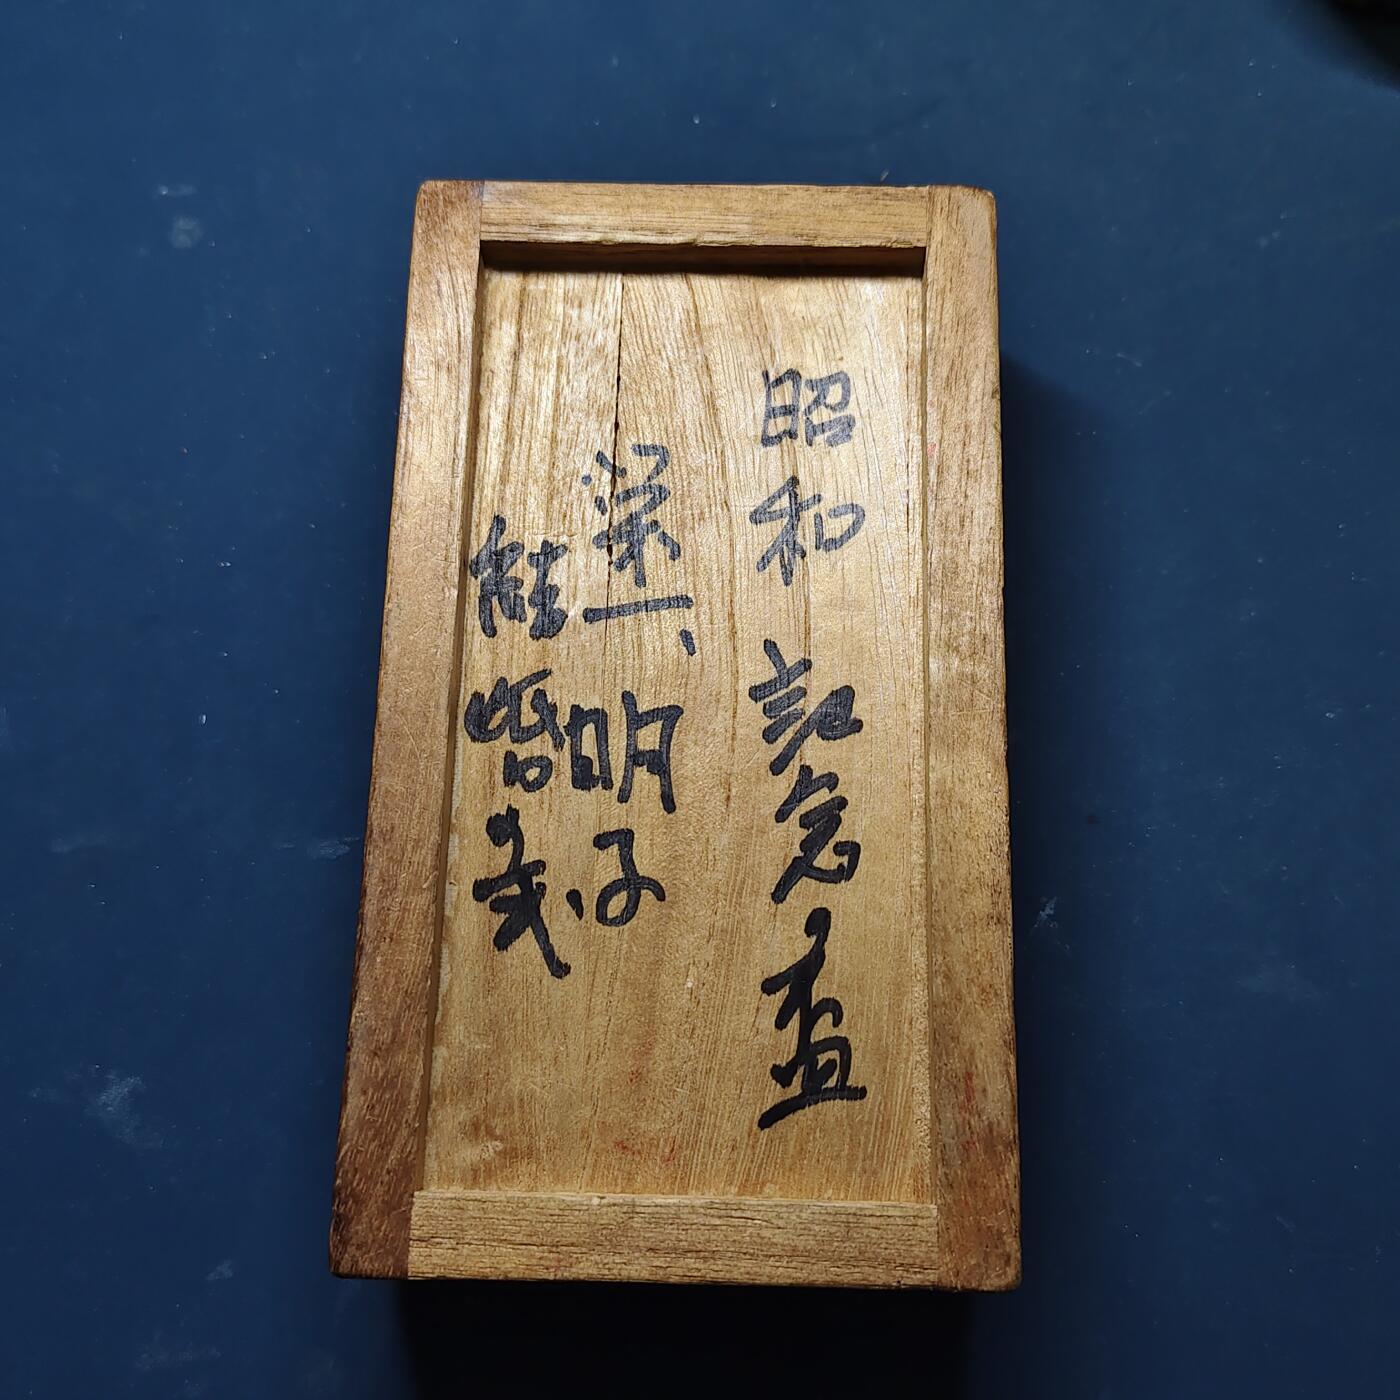 昭和 記念盃
栄一、明子、
結婚式